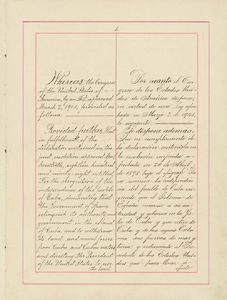 Whereas the Congress
of the United States of
America, by an Act approved
March 2, 1901, provided as
follows:
Provided further, That
in fulfillment of the
declaration contained in the
joint resolution approved April
twentieth, eighteen hundred
and ninety-eight, entitled
"For the recognition of the
independence of the people
of Cuba, demanding that
the Government of Spain
relinquish its authority and
government in the island
of Cuba, and to withdraw
its land and naval forces
from Cuba and Cuban waters,
and directing the President
of the United States to use
the land
Por cuanto el Con-
greso de los Estados Uni-
dos de América dispuso,
en virtud de una Ley apro-
bada en Marzo 2 de 1901,
lo siguiente:
Se dispone además,
Que en cumplimiento de
la declaración contenida en
la resolución conjunta a-
probada en 20 de Abril
de 1898
del pueblo de Cuba
que el Gobierno de
España renuncie á su au-
toridad y gobierno en la Isla
de Cuba y que retire de
Cuba y de las aguas cubanas
sus fuerzas de mar y
tierra, y ordenando al Presi-
dente de los Estados Unidos
que para llevar á
efecto